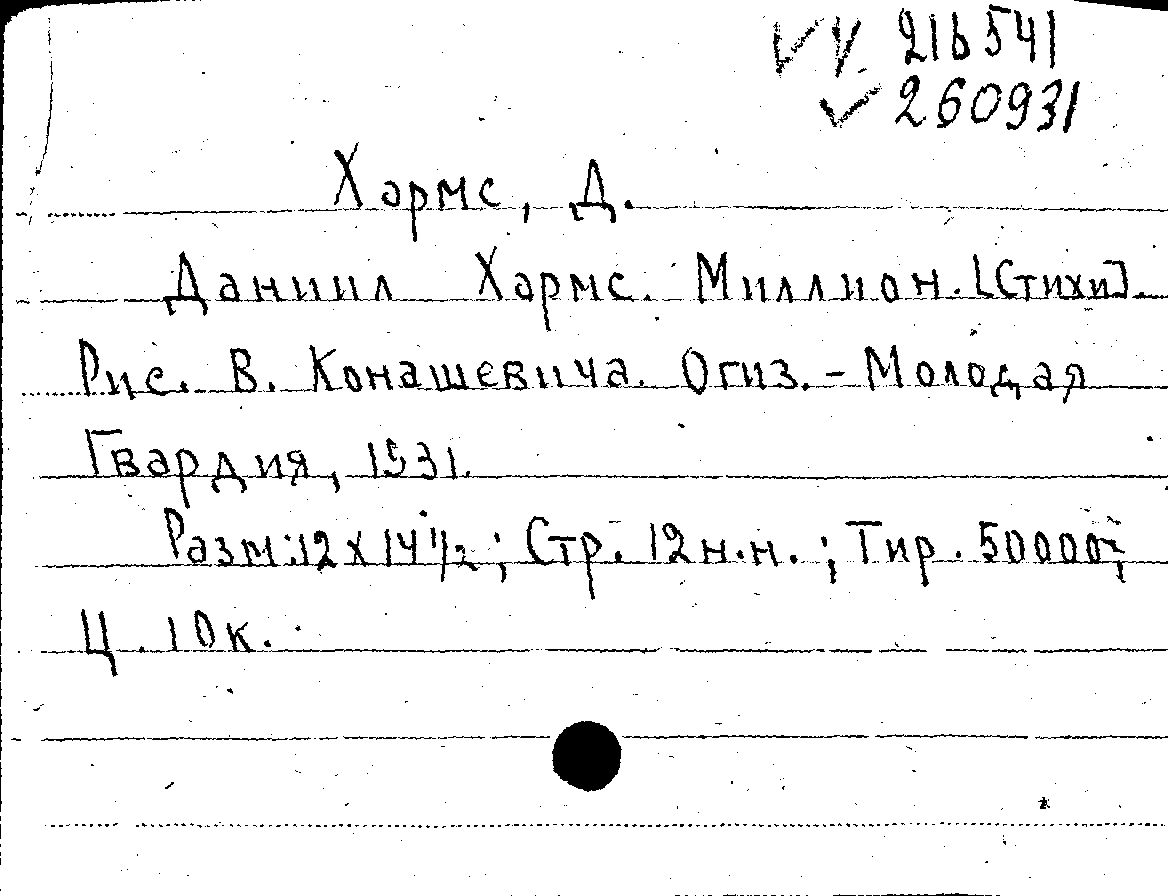 √ √ 216541
√ 260931
Хармс, Д.
Даниил Хармс. Миллион. [Стихи].
Рис. В. Конашевича. Огиз. - Молодая
Гвардия, 1931.
Разм: 12 х 14 1/2; Стр. 12 н.н.; Тир. 50000;
Ц. 10 к.